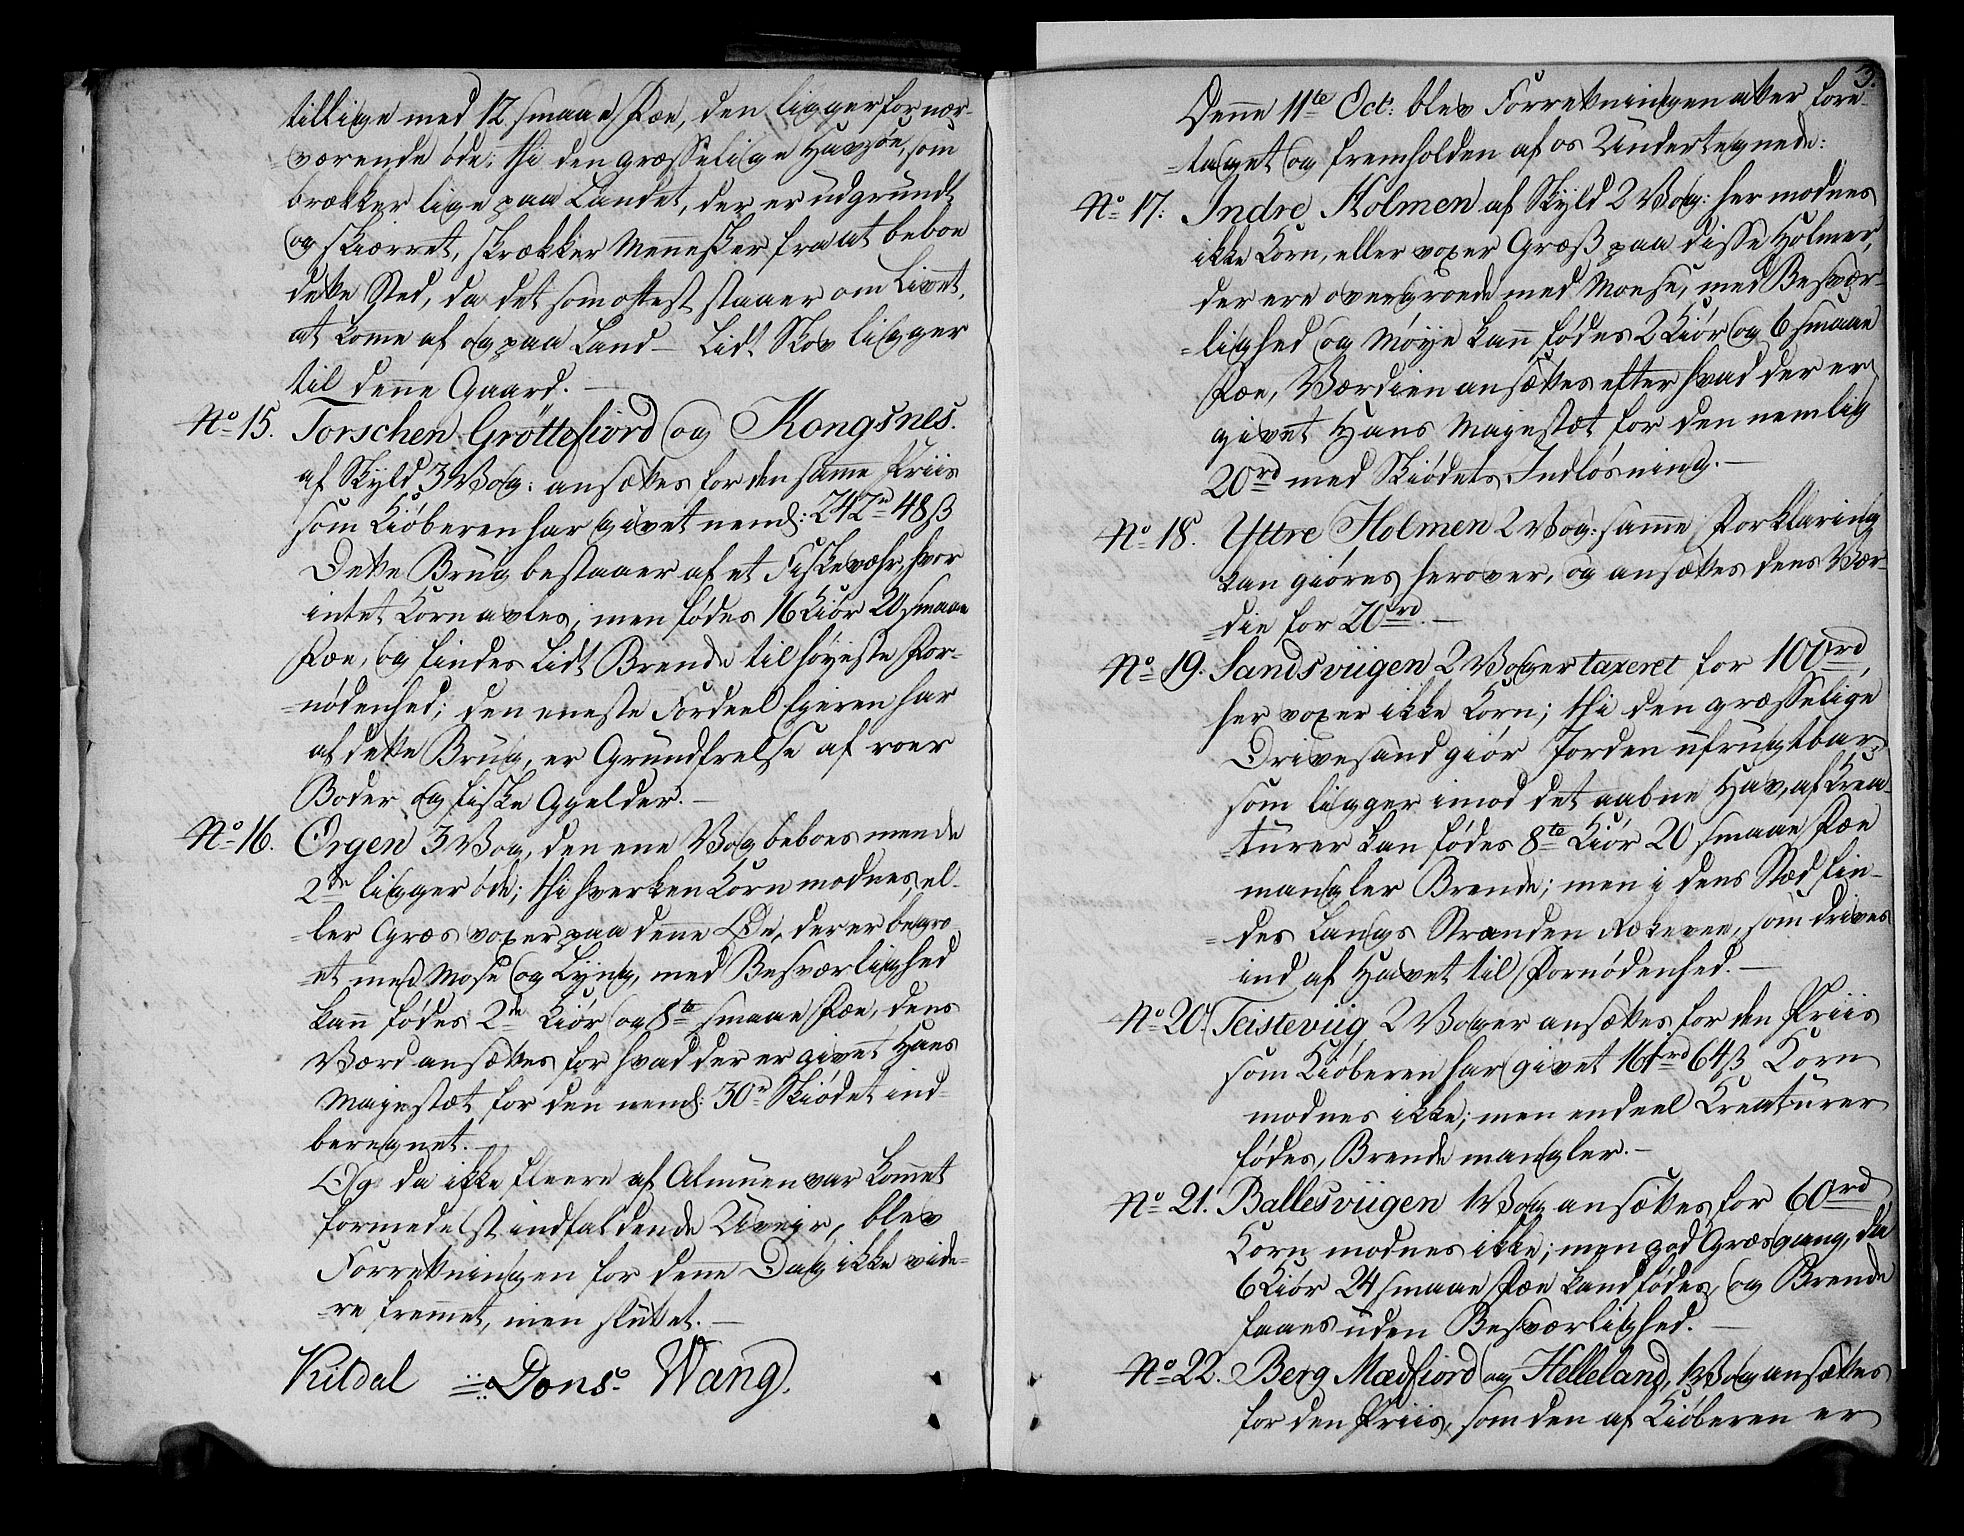 tillige med 12 smaae Fæe, den ligger for nær-
=værende øde; thi den græsselige Havsøe, som
brækker lige paa Landet, der er udgrundt
og skiærret, skrækker Mennesker fra at beboe
dette Sted, da det som oftest staaer om Livet,
at kome af og paa Land – Lidt Skov ligger
til denne Gaard. –
No 15. Torschen Gröttefiord og Kongsnes.
af Skyld 3 Vog: ansættes for den same Priis
som Kiøberen har givet neml: 242 rd 48 ß
Dette Brug bestaaer af et Fiskevæhr, hvor
intet Korn avles, men fødes 16 Kiør 20 smaae
Fæe, og findes Lidt Brende til høyeste For-
=nødenhed; den eneste Fordeel Eyeren har
af dette Brug, er Grundfrelse af roer
Boder og fiske Gjelder. –
No 16. Ørgen 3 Vog, den ene Vog beboes men de
2de ligger øde; thi hverken Korn modnes, el-
=ler Græs voxer paa denne Øe, der er begro
=et med Mose og Lyng, med Besværlighed
kan fødes 2de Kiør og 8te smaae Fæe, dens
Værd ansættes for hvad der er givet Hans
Majestæt for den neml: 30 rd Skiødet ind-
beregnet. –
Og da ikke fleere af Almuen var komet
formedelst indfaldende Uveyr, blev
Forretningen for dene Dag ikke vide-
=re fremet, men sluttet. –
Kildal Dons. Wang.
3.
Denne 11te Oct: blev Forretningen atter fore-
=taget og fremholden af os Undertegnede:
No 17. Indre Holmen af Skyld 2 Vog: her modnes
ikke Korn, eller voxer Græß paa disse Holmer,
der ere overgroede med Moese, med Besvær-
=lighed og Møye kan fødes 2 Kiør og 6 smaae
Fæe, Værdien ansættes efter hvad der er
givet Hans Majestæt for den nemlig
20 rd med Skiødets Indløsning. –
No 18. Yttre Holmen 2 Vog: same Forklaring
kan giøres herover, og ansættes dens Vær-
=die for 20 rd. –
No 19. Sandsviigen 2 Voger taxeret for 100 rd,
her voxer ikke Korn; thi den græsselige
Drivesand giør Jorden ufrugtbar,
som ligger imod det aabne Hav, af Krea-
=turer kan fødes 8te Kiør 20 smaae Fæe
mangler Brende; men i dens Sted fin-
=des langs Stranden Rekevee, som drives
ind af Havet til Fornødenhed. –
No 20. Teisteviig 2 Voger ansættes for den Priis
som Kiøberen har givet 161 rd 64 ß Korn
modnes ikke; men endeel Creaturer
fødes, Brende mangler. –
No 21. Ballesviigen 1 Vog ansættes for 60 rd
Korn modnes ikke; men god Græsgang, da
6 Kiør 24 smaae Fæe kand fødes, og Brende
faaes uden Besværlighed. –
No 22. Berg Mædfiord og Helleland, 1 Vog ansættes
for den Priis, som den af Kiøberen er